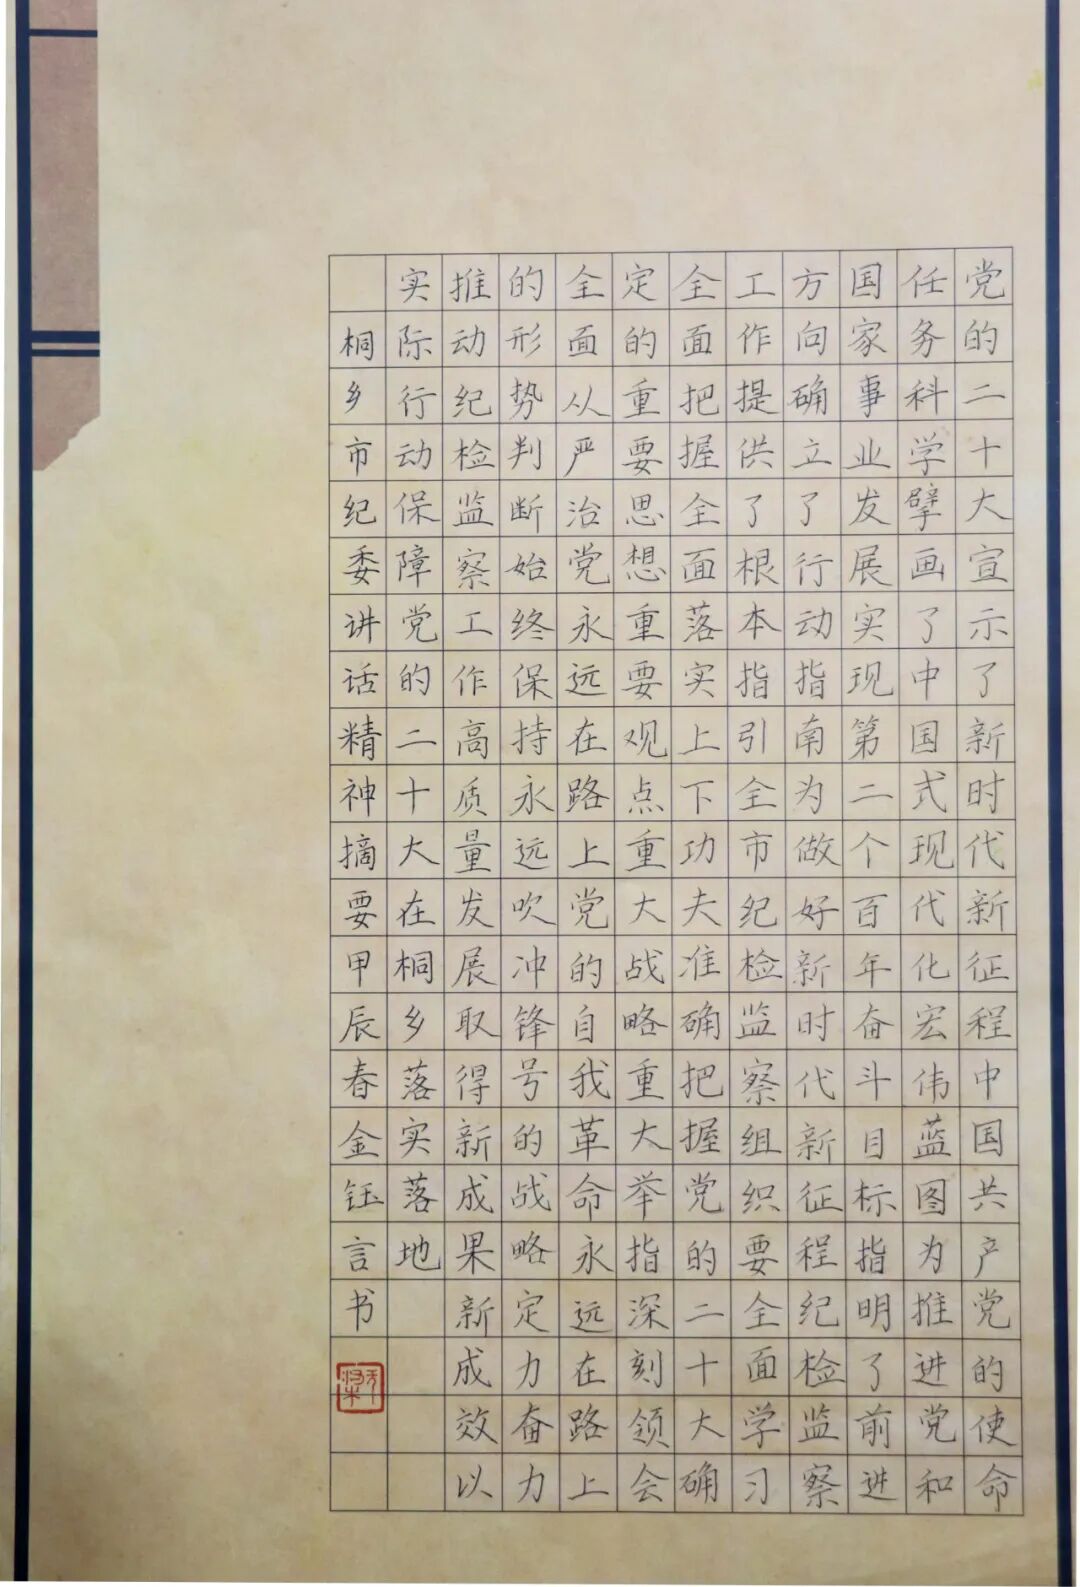 党的二十大宣示了新时代新征程中国共产党的使命
任务科学擘画了中国式现代化宏伟蓝图为推进党和
国家事业发展实现第二个百年奋斗目标指明了前进
方向确立了行动指南为做好新时代新征程纪检监察
工作提供了根本指引全市纪检监察组织要全面学习
全面把握全面落实上下功夫准确把握党的二十大确
定的重要思想重要观点重大战略重大举指深刻领会
全面从严治党永远在路上党的自我革命永远在路上
的形势判断始终保持永远吹冲锋号的战略定力奋力
推动纪检监察工作高质量发展取得新成果新成效以
实际行动保障党的二十大在桐乡落实落地
桐乡市纪委讲话精神摘要甲辰春金钰言书